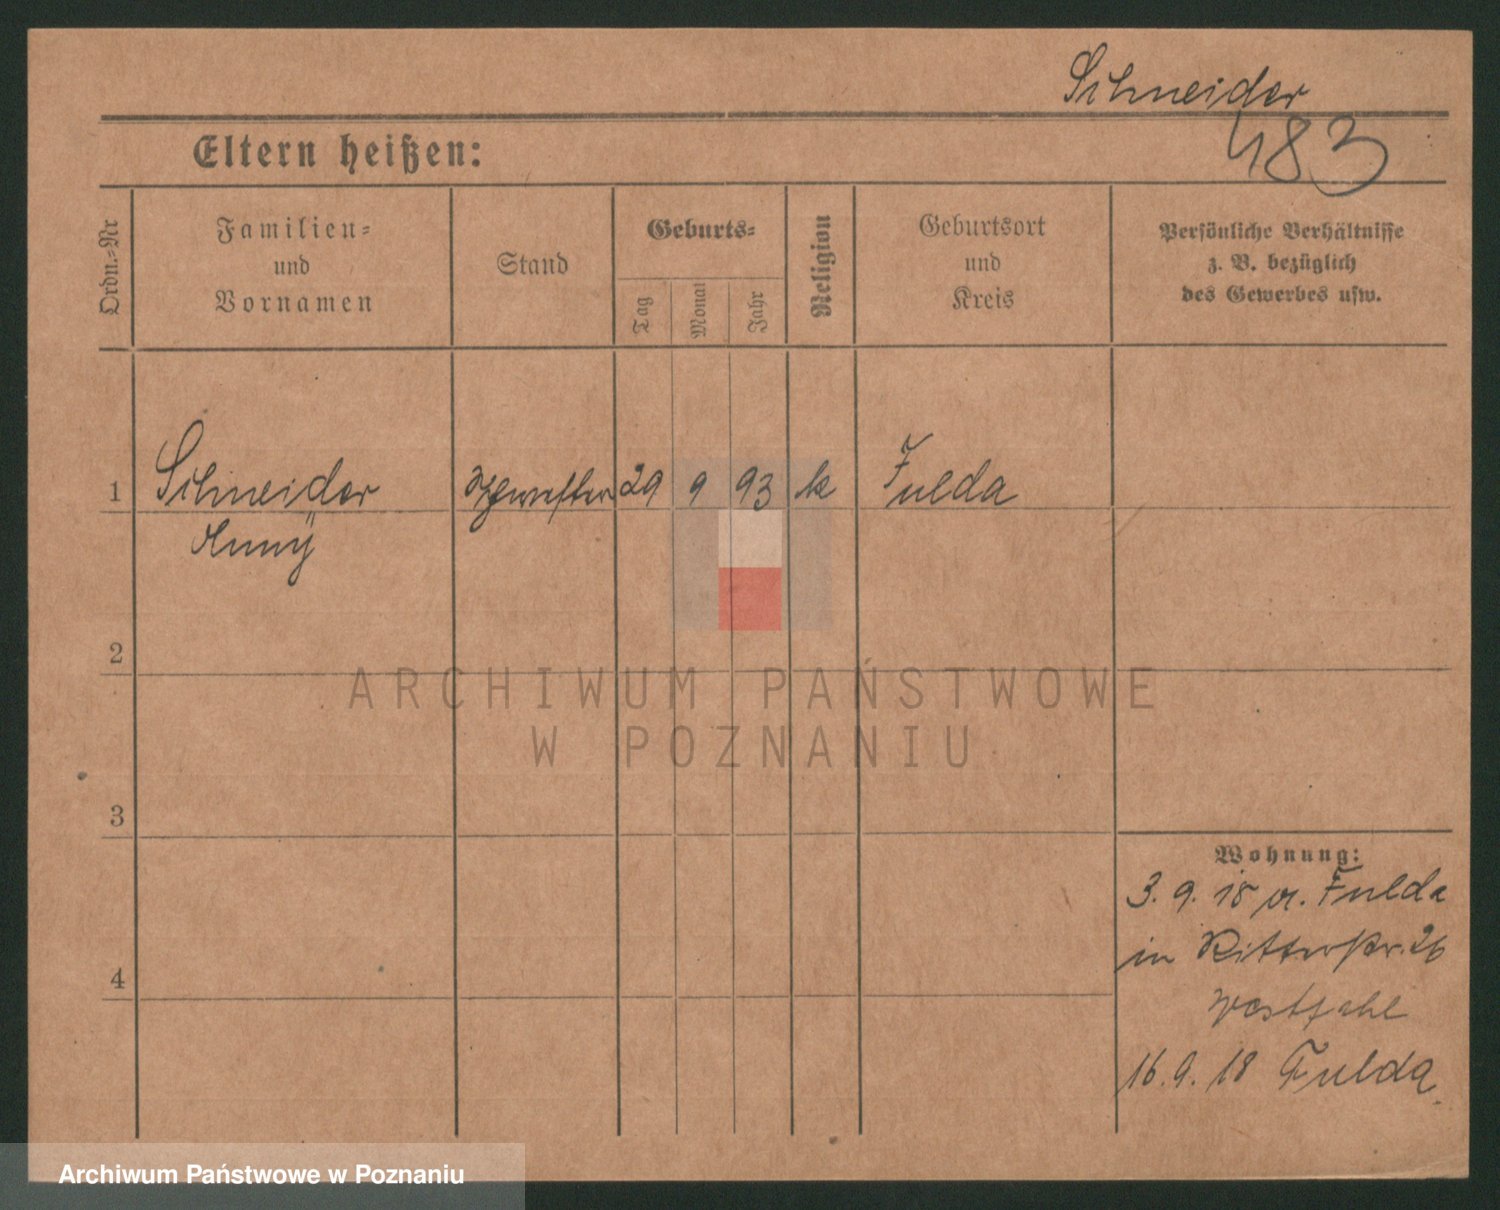 Schneider
483
Eltern heißen:
Ordn.-Nr
Familien-
und
Vornamen
Stand
Geburts-
Tag
Monat
Jahr
Religion
Geburtsort
und
Kreis
Persönliche Verhältnisse
z. B. bezüglich
des Gewerbes usw.
1 Schneider Schwester 29 9 93 k Fulda
Anny
2
ARCHIWUM PAŃSTWOWE
W POZNANIU
3
Wohnung:
3. 9. 18 v. Fulda
in Ritterstr. 26
Westfahl
4
16. 9. 18 Fulda.
Archiwum Państwowe w Poznaniu